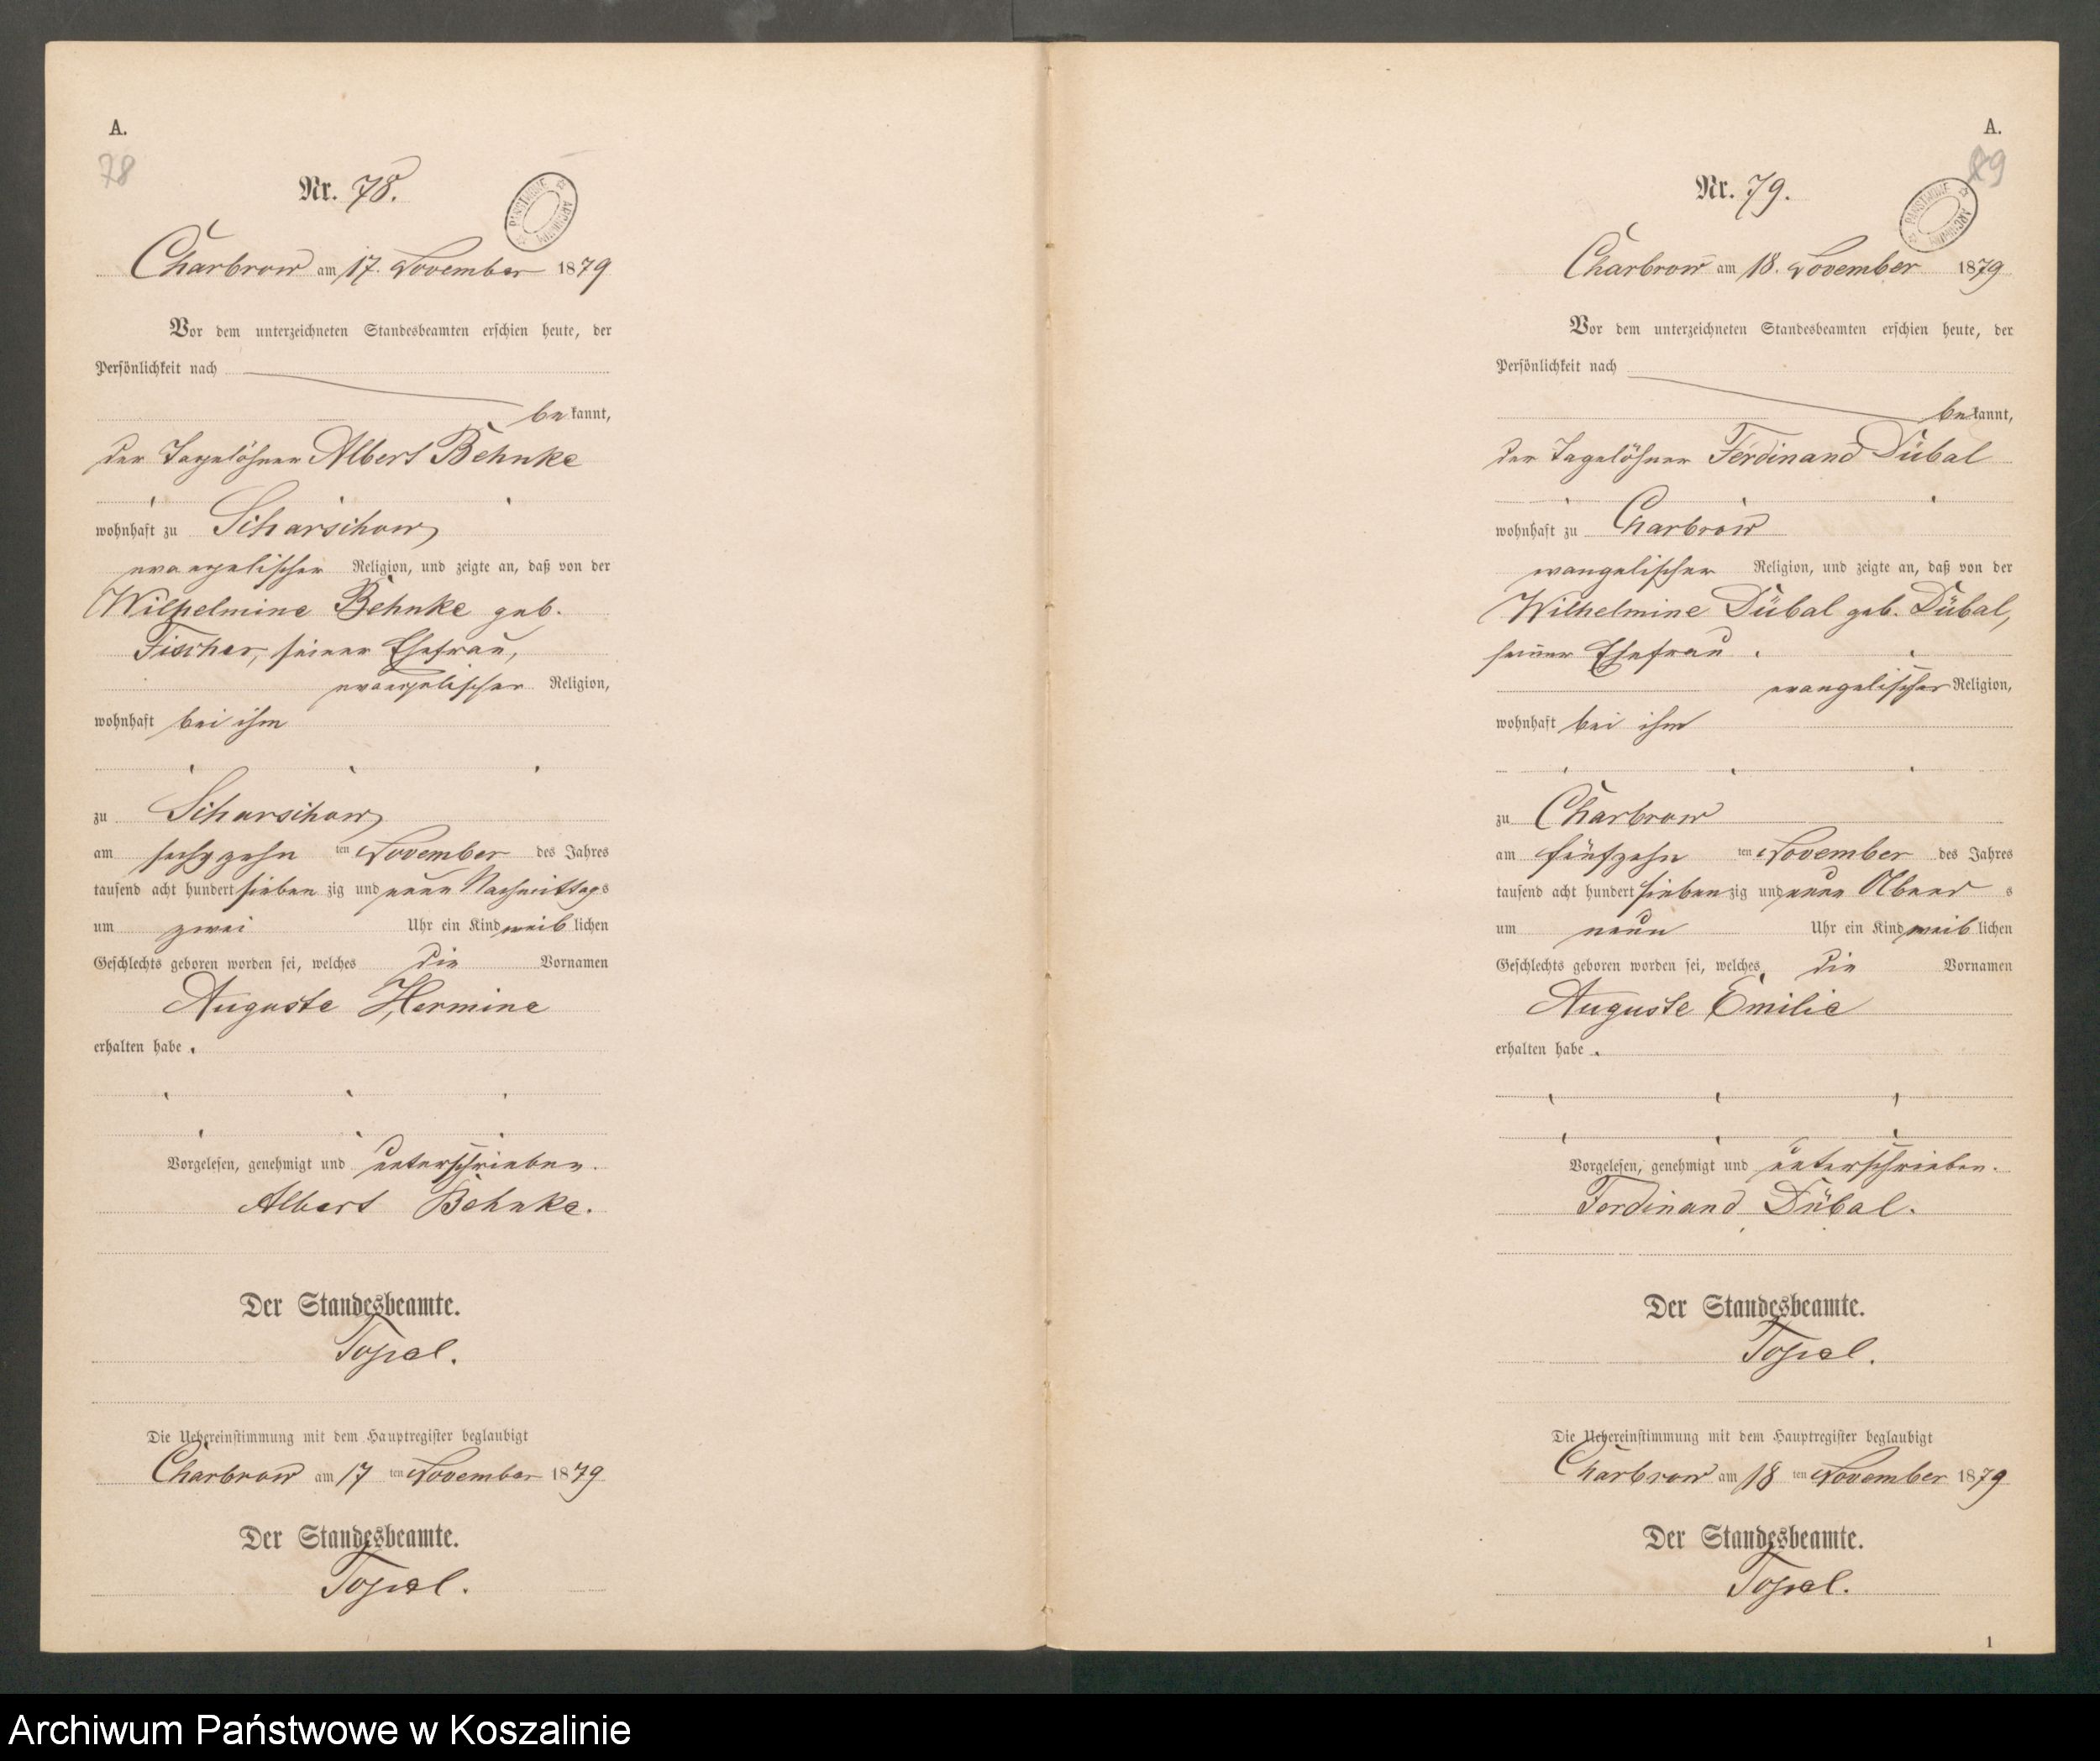 A.
78
Nr. 78.
PAŃSTWOWE ARCHIWUM
Charbrow am 17. November 1879
Vor dem unterzeichneten Standesbeamten erschien heute, der
Persönlichkeit nach
be kannt,
der Tagelöhner Albert Behnke
wohnhaft zu Scharschow
evangelischer Religion, und zeigte an, daß von der
Wilhelmine Behnke geb.
Fischer, seiner Ehefrau,
evangelischer Religion,
wohnhaft bei ihm
zu Scharschow
am sechzehn ten November des Jahres
tausend acht hundert sieben zig und neun Nachmittags
um zwei Uhr ein Kind weib lichen
Geschlechts geboren worden sei, welches die Vornamen
Auguste Hermine
erhalten habe.
Vorgelesen, genehmigt und unterschrieben.
Albert Behnke.
Der Standesbeamte.
Die Uebereinstimmung mit dem Hauptregister beglaubigt
Charbrow am 17 ten November 1879
Der Standesbeamte.
A.
79
Nr. 79.
PAŃSTWOWE ARCHIWUM
Charbrow am 18. November 1879
Vor dem unterzeichneten Standesbeamten erschien heute, der
Persönlichkeit nach
be kannt,
der Tagelöhner Ferdinand Dübal
wohnhaft zu Charbrow
evangelischer Religion, und zeigte an, daß von der
Wilhelmine Dübal geb. Dübal,
seiner Ehefrau
evangelischer Religion,
wohnhaft bei ihm
zu Charbrow
am fünfzehn ten November des Jahres
tausend acht hundert sieben zig und neun Abend s
um neun Uhr ein Kind weib lichen
Geschlechts geboren worden sei, welches die Vornamen
Auguste Emilie
erhalten habe.
Vorgelesen, genehmigt und unterschrieben.
Ferdinand Dübal.
Der Standesbeamte.
Die Uebereinstimmung mit dem Hauptregister beglaubigt
Charbrow am 18 ten November 1879
Der Standesbeamte.
1
Archiwum Państwowe w Koszalinie